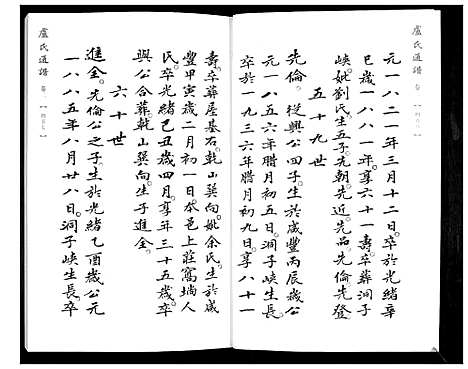 盧氏通譜
卷
元一八二一年三月十二日。卒於光緒辛
巳歲一八八一年。享六十一壽。卒葬洞子
峽。妣劉氏。生五子。先朝。先近。先品。先倫。先登
五十九世
先倫。從興公四子。生於咸豐丙辰歲公
元一八五六年腊月初五日。洞子峽生長。
卒於一九三六年腊月初九日。享八十一
壽。卒葬屋基右。乾山巽向。妣余氏。生於咸
豐甲寅歲二月初一日。本邑上莊寓塆人
氏。卒光緒己丑歲四月。享年三十五歲。卒
興公合葬。乾山巽向。生子進全。
六十世
進全。先倫公之子。生於光緒乙酉歲公元
一八八五年八月廿八日。洞子峽生長。卒
盧氏通譜
卷一